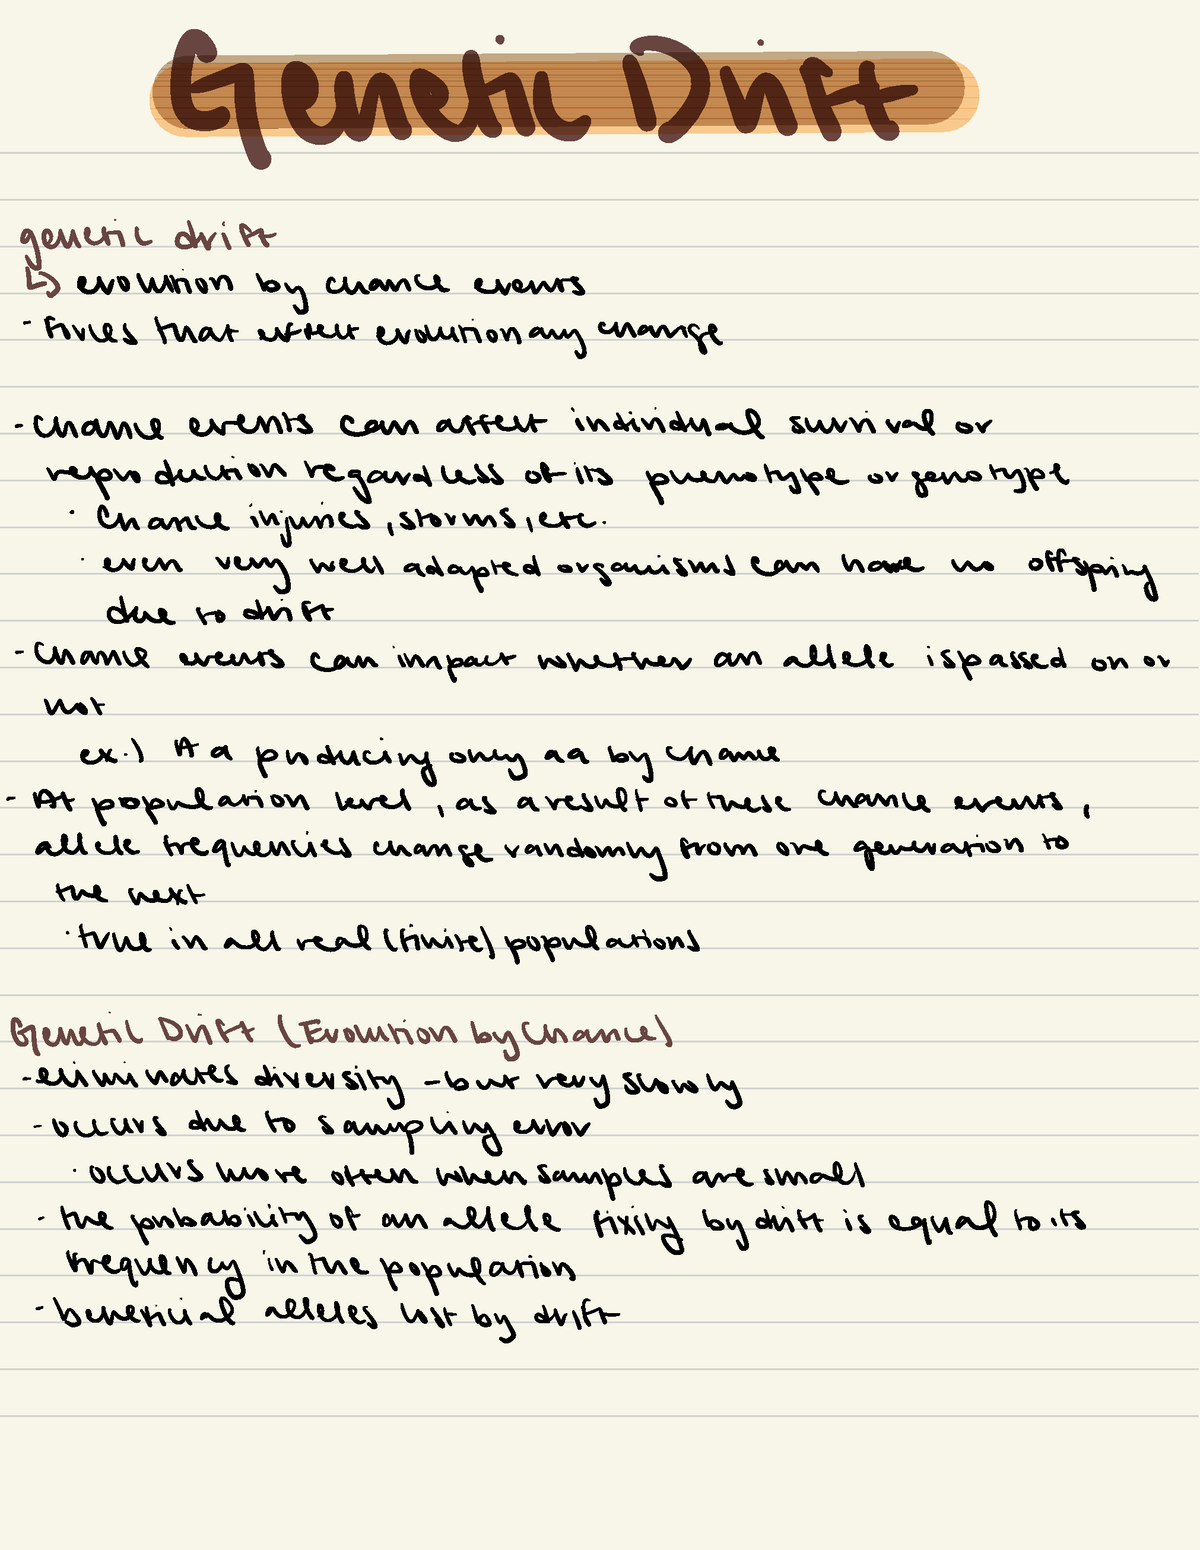 Genetic Drift
genetic drift
↳ evolution by chance events
- forces that effect evolutionary change
- Chance events can affect individual survival or
reproduction regardless of its phenotype or genotype
· Chance injuries, storms, etc.
· even very well adapted organisms can have no offspring
due to drift
- Chance events can impact whether an allele is passed on or
not
ex.) Aa producing only aa by chance
- At population level, as a result of these chance events,
allele frequencies change randomly from one generation to
the next
· true in all real (finite) populations
Genetic Drift (Evolution by Chance)
- eliminates diversity - but very slowly
- occurs due to sampling error
· occurs more often when samples are small
- the probability of an allele fixing by drift is equal to its
frequency in the population
- beneficial alleles lost by drift